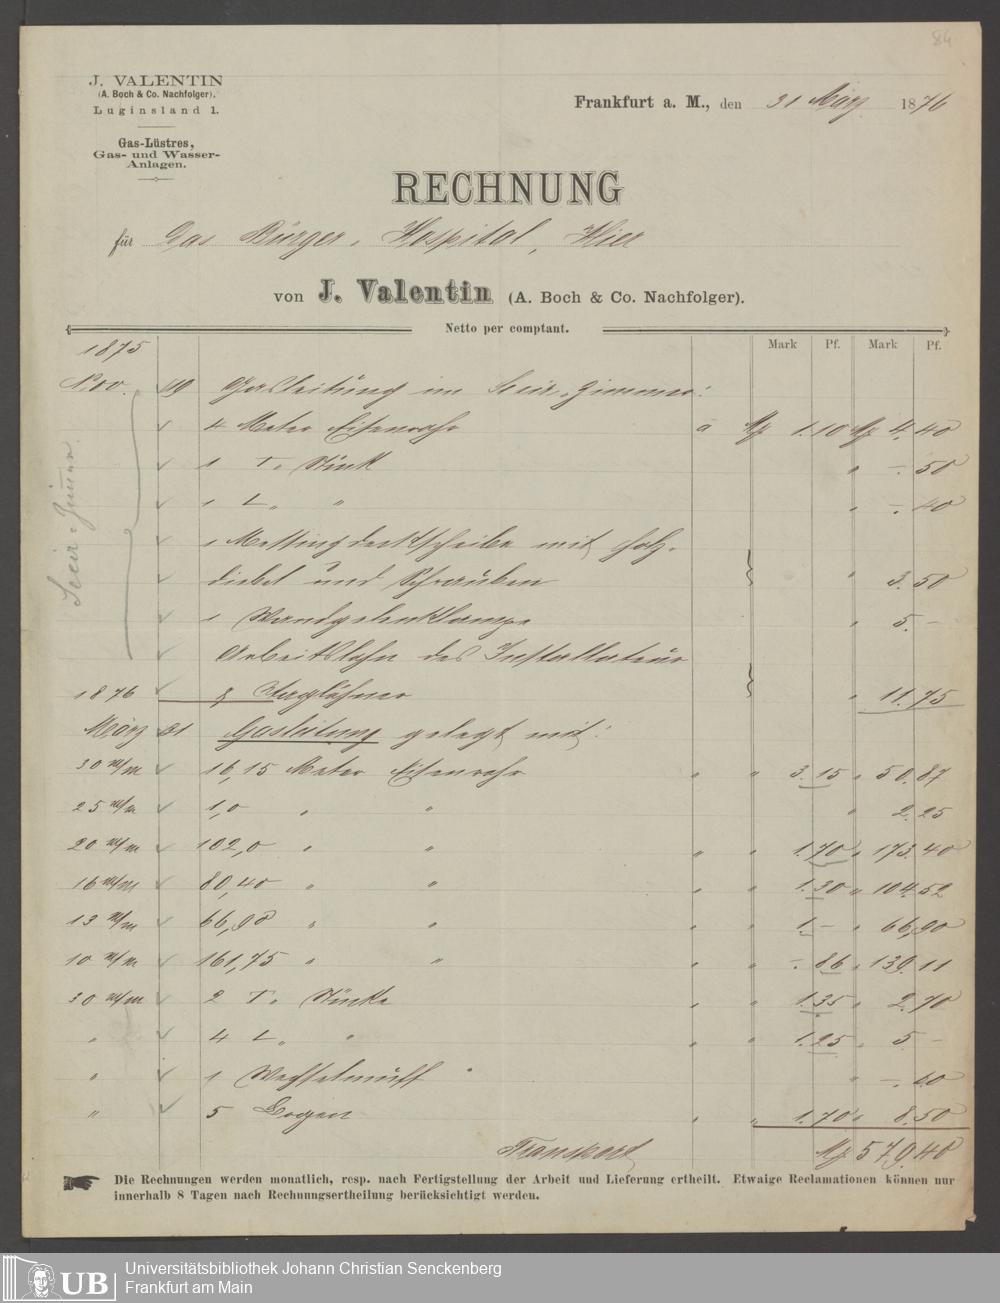 84
J. VALENTIN
(A. Boch & Co. Nachfolger).
Luginsland 1.
Gas-Lüstres,
Gas- und Wasser-
Anlagen.
Frankfurt a. M., den 31 März 1876
RECHNUNG
für Das Bürger, Hospital, Hier
von J. Valentin (A. Boch & Co. Nachfolger).
Netto per comptant.
Mark Pf. Mark Pf.
1875
Nov. 19 Gasleitung im Secir-Zimmer:
4 Meter Eisenrohr a M 1.10 M 4.40
1 T, Stück " –.50
1 L, " " –.40
1 Messingdeckscheibe mit Holz-
diebel und Schrauben " 3.50
1 Wandgelenklampe " 5.–
Arbeitslohn des Installateur
1876 & Taglöhner " 11.75
Secir-Zimmer
März 31 Gasleitung gelegt mit:
30 m/m 16,15 Meter Eisenrohr " " 3.15 " 50.87
25 m/m 1,0 " " " 2.25
20 m/m 102,0 " " " " 1.70 " 173.40
16 m/m 80,40 " " " " 1.30 " 104.52
13 m/m 66,90 " " " " 1.– " 66,90
10 m/m 161,75 " " " " –.86 " 139.11
30 m/m 2 T, Stücke " " 1.35 " 2.70
" 4 L, " " " 1.25 " 5.–
" 1 Wechselmuff " " –.60
" 5 Bogen " " 1.70 " 8.50
Transport M 579.40
Die Rechnungen werden monatlich, resp. nach Fertigstellung der Arbeit und Lieferung ertheilt. Etwaige Reclamationen können nur
innerhalb 8 Tagen nach Rechnungsertheilung berücksichtigt werden.
UB
Universitätsbibliothek Johann Christian Senckenberg
Frankfurt am Main